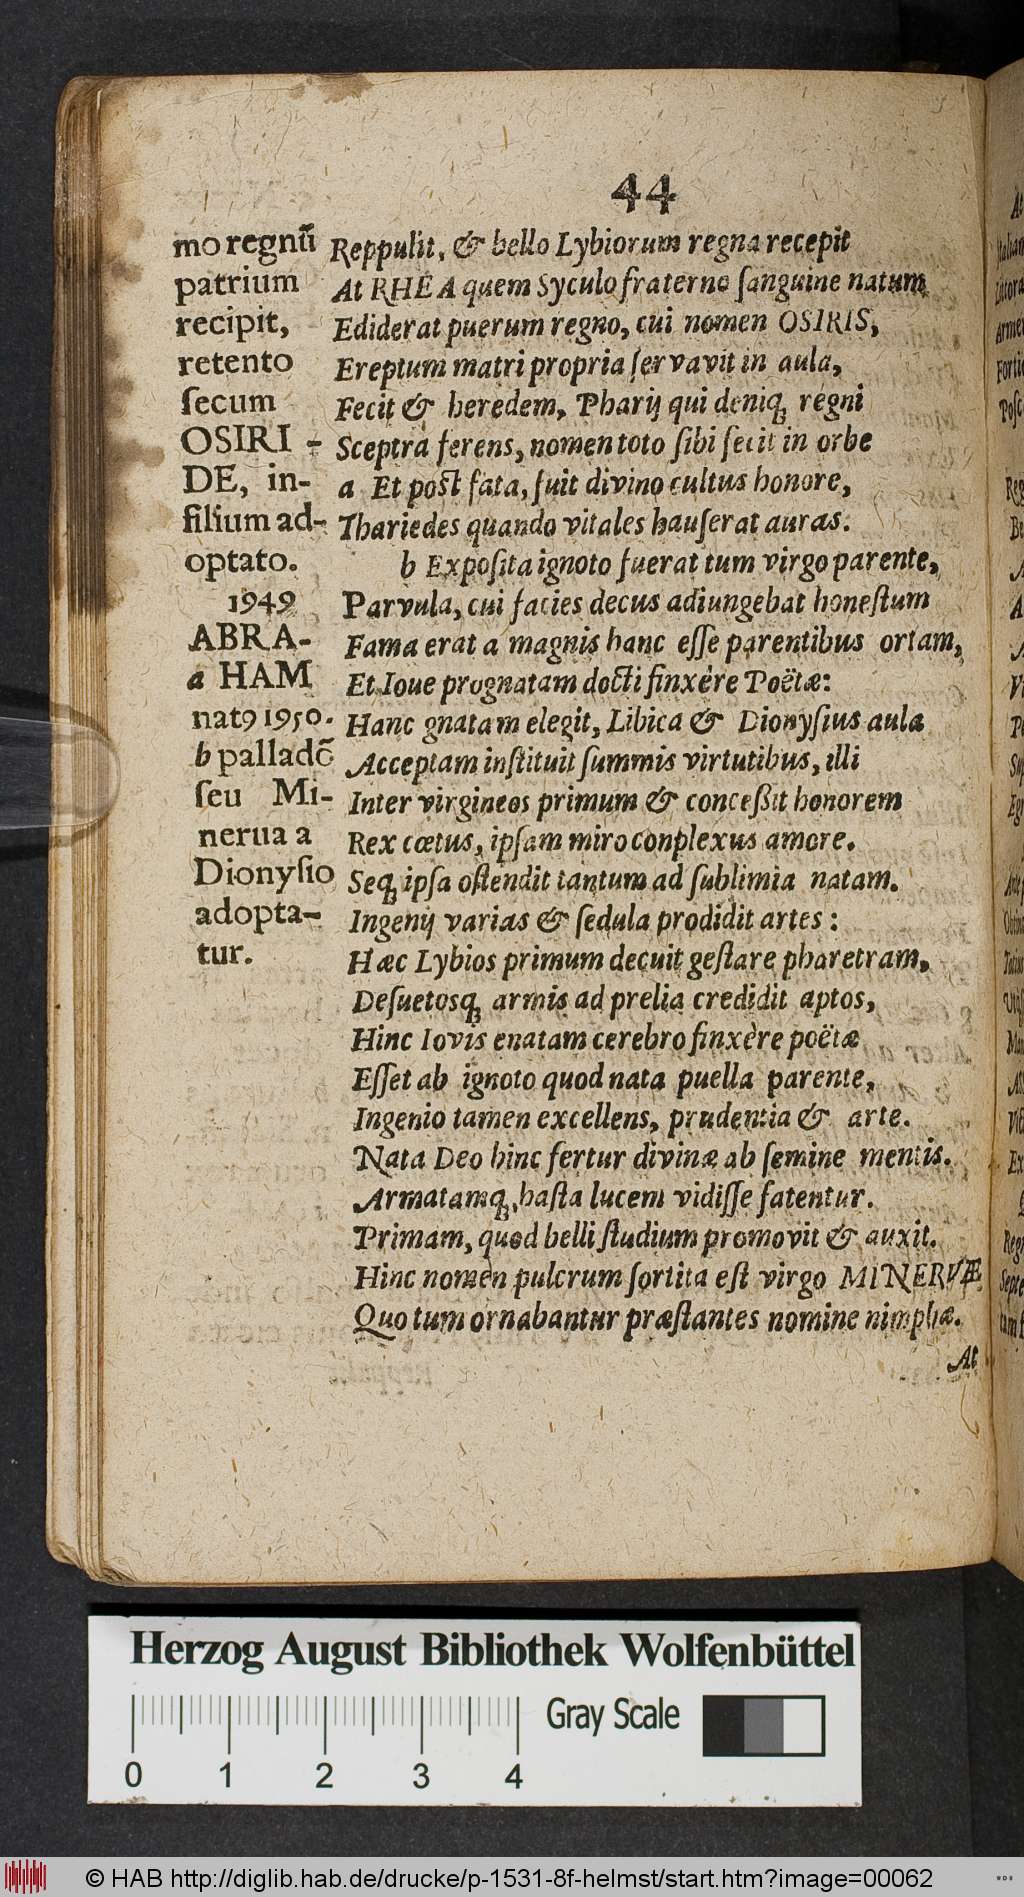 44
mo regnũ
patrium
recipit,
retento
ſecum
OSIRI -
DE, in-
filium ad-
optato.
1949
ABRA-
a HAM
natꝰ 1950.
b palladẽ
ſeu Mi-
nerua a
Dionyſio
adopta-
tur.
Reppulit, & bello Lybiorum regna recepit
At RHEA quem Syculo fraterno ſanguine natum
Ediderat puerum regno, cui nomen OSIRIS,
Ereptum matri propria ſervavit in aula,
Fecit & heredem, Pharij qui deniq́ꝫ regni
Sceptra ferens, nomen toto ſibi fecit in orbe
a Et poſt fata, fuit divino cultus honore,
Thariedes quando vitales hauſerat auras.
b Expoſita ignoto fuerat tum virgo parente,
Parvula, cui facies decus adiungebat honeſtum
Fama erat a magnis hanc eſſe parentibus ortam,
Et Ioue prognatam docti finxère Poëtæ:
Hanc gnatam elegit, Libica & Dionyſius aula
Acceptam inſtituit ſummis virtutibus, illi
Inter virgineos primum & conceßit honorem
Rex cœtus, ipſam miro conplexus amore.
Seqꝫ ipſa oſtendit tantum ad ſublimia natam.
Ingenij varias & ſedula prodidit artes :
Hæc Lybios primum decuit geſtare pharetram,
Deſuetosqꝫ armis ad prelia credidit aptos,
Hinc Iovis enatam cerebro finxère poëtæ
Eſſet ab ignoto quod nata puella parente,
Ingenio tamen excellens, prudentia & arte.
Nata Deo hinc fertur divinæ ab ſemine mentis.
Armatamqꝫ, haſta lucem vidiſſe fatentur.
Primam, quod belli ſtudium promovit & auxit.
Hinc nomen pulcrum ſortita eſt virgo MINERVÆ
Quo tum ornabantur præſtantes nomine nimphæ.
At
Herzog August Bibliothek Wolfenbüttel
Gray Scale
0 1 2 3 4
© HAB http://diglib.hab.de/drucke/p-1531-8f-helmst/start.htm?image=00062